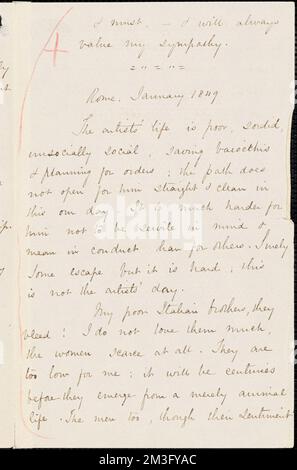 4
I must, – I will always
value my sympathy.
= " = " =
Rome, January 1849
The artists' life is poor, sordid,
unsocially social, saving baiocchis
& planning for orders; the path does
not open for him straight & clean in
this our day. It is much harder for
him not to be servile in mind &
mean in conduct than for others. Surely
some escape but it is hard; this
is not the artists' day.
My poor Italian brothers, they
bleed! I do not love them much,
the women scarce at all. They are
too low for me; it will be centuries
before they emerge from a merely animal
life. The men too, though their sentiment
alamy
Image ID: 2M3FYAC
www.alamy.com